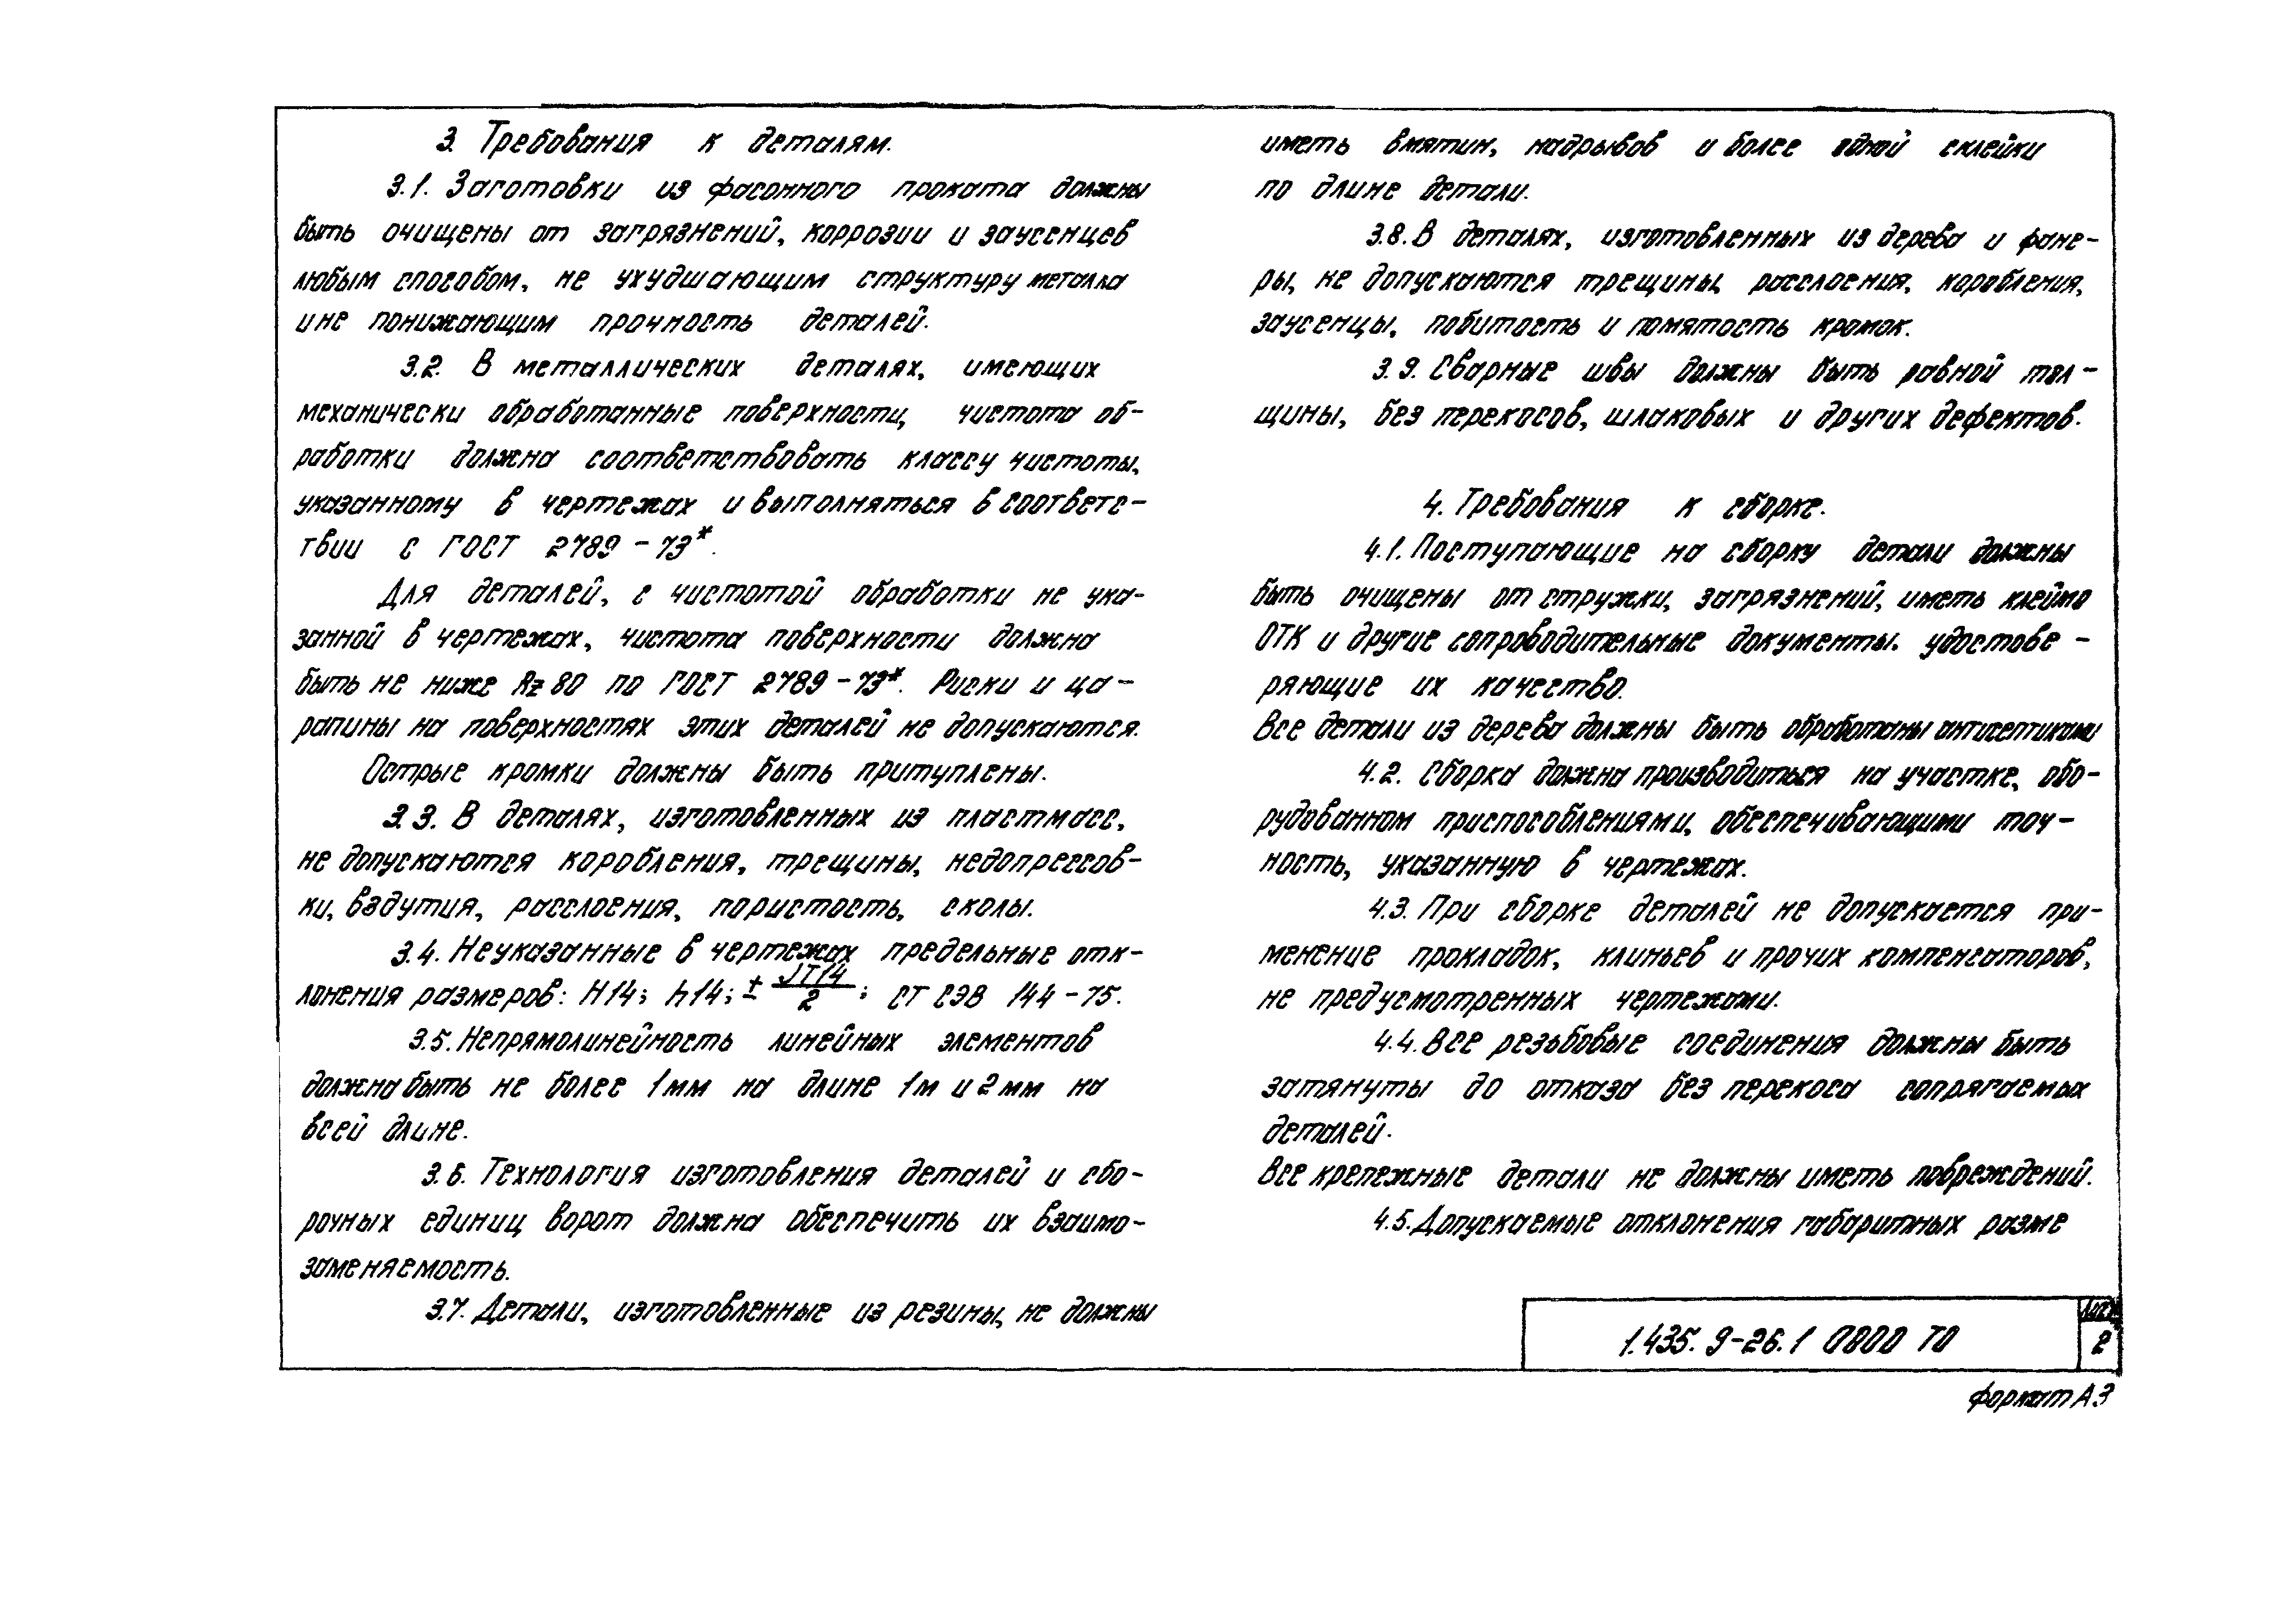 3. Требования к деталям.
3.1. Заготовки из фасонного проката должны
быть очищены от загрязнений, коррозии и заусенцев
любым способом, не ухудшающим структуру металла
и не понижающим прочность деталей.
3.2. В металлических деталях, имеющих
механически обработанные поверхности, чистота об-
работки должна соответствовать классу чистоты,
указанному в чертежах и выполняться в соответс-
твии с ГОСТ 2789-73*.
Для деталей, с чистотой обработки не ука-
занной в чертежах, чистота поверхности должна
быть не ниже Rz 80 по ГОСТ 2789-73*. Риски и ца-
рапины на поверхностях этих деталей не допускаются.
Острые кромки должны быть притуплены.
3.3. В деталях, изготовленных из пластмасс,
не допускаются коробления, трещины, недопрессов-
ки, вздутия, расслоения, пористость, сколы.
3.4. Неуказанные в чертежах предельные отк-
лонения размеров: H14; h14; ± JT14/2; СТ СЭВ 144-75.
3.5. Непрямолинейность линейных элементов
должна быть не более 1мм на длине 1м и 2мм на
всей длине.
3.6. Технология изготовления деталей и сбо-
рочных единиц ворот должна обеспечить их взаимо-
заменяемость.
3.7. Детали, изготовленные из резины, не должны
иметь вмятин, надрывов и более одной склейки
по длине детали.
3.8. В деталях, изготовленных из дерева и фане-
ры, не допускаются трещины, расслоения, коробления,
заусенцы, побитость и помятость кромок.
3.9. Сварные швы должны быть равной тол-
щины, без перекосов, шлаковых и других дефектов.
4. Требования к сборке.
4.1. Поступающие на сборку детали должны
быть очищены от стружки, загрязнений, иметь клеймо
ОТК и другие сопроводительные документы, удостове-
ряющие их качество.
Все детали из дерева должны быть обработаны антисептиками
4.2. Сборка должна производиться на участке, обо-
рудованном приспособлениями, обеспечивающими точ-
ность, указанную в чертежах.
4.3. При сборке деталей не допускается при-
менение прокладок, клиньев и прочих компенсаторов,
не предусмотренных чертежами.
4.4. Все резьбовые соединения должны быть
затянуты до отказа без перекоса сопрягаемых
деталей.
Все крепежные детали не должны иметь повреждений.
4.5. Допускаемые отклонения габаритных разме
1.435.9-26.1 0800 ТО
Лист
2
Формат А3